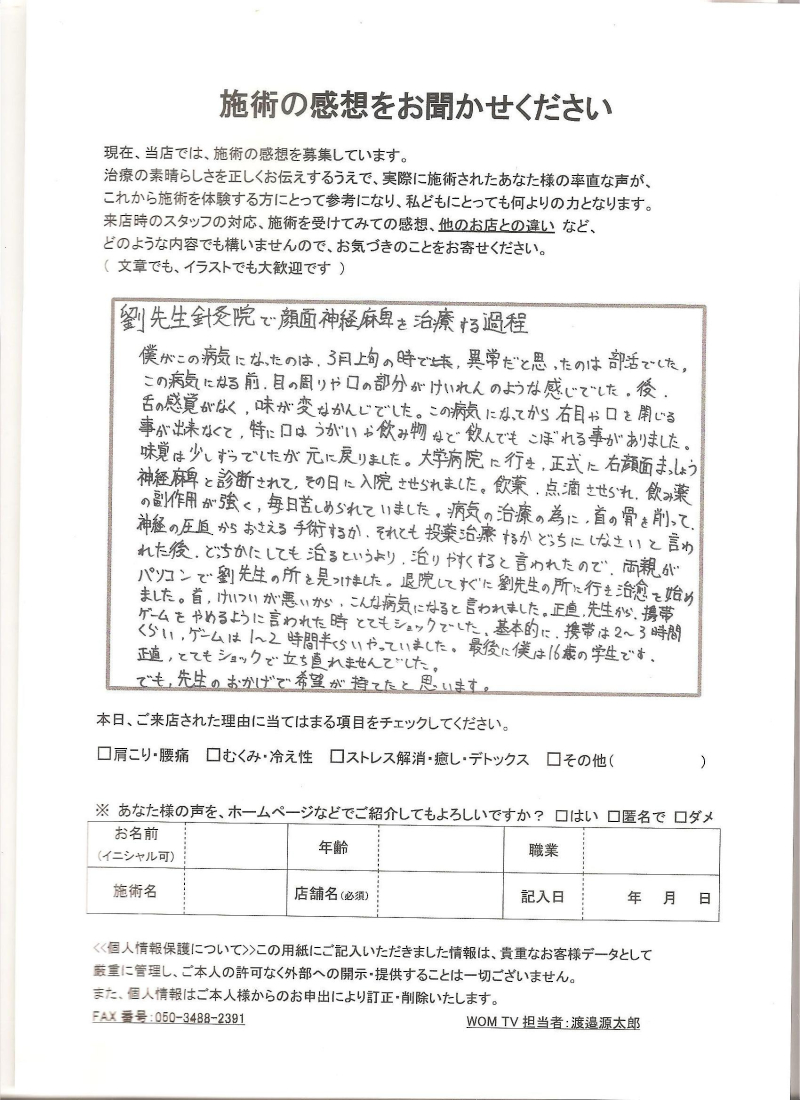 施術の感想をお聞かせください
現在、当店では、施術の感想を募集しています。
治療の素晴らしさを正しくお伝えするうえで、実際に施術されたあなた様の率直な声が、
これから施術を体験する方にとって参考になり、私どもにとっても何よりの力となります。
来店時のスタッフの対応、施術を受けてみての感想、他のお店との違い など、
どのような内容でも構いませんので、お気づきのことをお寄せください。
( 文章でも、イラストでも大歓迎です )
劉先生針灸院で顔面神経麻痺を治療する過程
僕がこの病気になったのは、3月上旬の時で、異常だと思ったのは部活でした。
この病気になる前、目の周りや口の部分がけいれんのような感じでした。後、
舌の感覚がなく、味が変なかんじでした。この病気になってから右目や口を閉じる
事が出来なくて、特に口はうがいや飲み物など飲んでもこぼれる事がありました。
味覚は少しずつでしたが元に戻りました。大学病院に行き、正式に右顔面まっしょう
神経麻痺と診断されて、その日に入院させられました。飲薬、点滴させられ、飲み薬
の副作用が強く、毎日苦しめられていました。病気の治療の為に、首の骨を削って、
神経の圧迫からおさえる手術するか、それとも投薬治療するかどっちにしなさいと言わ
れた後、どちらかにしても治るというより、治りやすくすると言われたので、両親が
パソコンで劉先生の所を見つけました。退院してすぐに劉先生の所に行き治癒を始め
ました。首、けいついが悪いから、こんな病気になると言われました。正直、先生から、携帯
ゲームをやめるように言われた時とてもショックでした。基本的に、携帯は2~3時間
くらい、ゲームは1~2時間半くらいやっていました。最後に僕は16歳の学生です、
正直、とてもショックで立ち直れませんでした。
でも、先生のおかげで希望が持てたと思います。
本日、ご来店された理由に当てはまる項目をチェックしてください。
□肩こり・腰痛 □むくみ・冷え性 □ストレス解消・癒し・デトックス □その他( )
※ あなた様の声を、ホームページなどでご紹介してもよろしいですか? □はい □匿名で □ダメ
お名前 (イニシャル可) 年齢 職業
施術名 店舗名(必須) 記入日 年 月 日
<<個人情報保護について>>この用紙にご記入いただきました情報は、貴重なお客様データとして
厳重に管理し、ご本人の許可なく外部への開示・提供することは一切ございません。
また、個人情報はご本人様からのお申出により訂正・削除いたします。
FAX 番号:050-3488-2391 WOM TV 担当者:渡邉源太郎